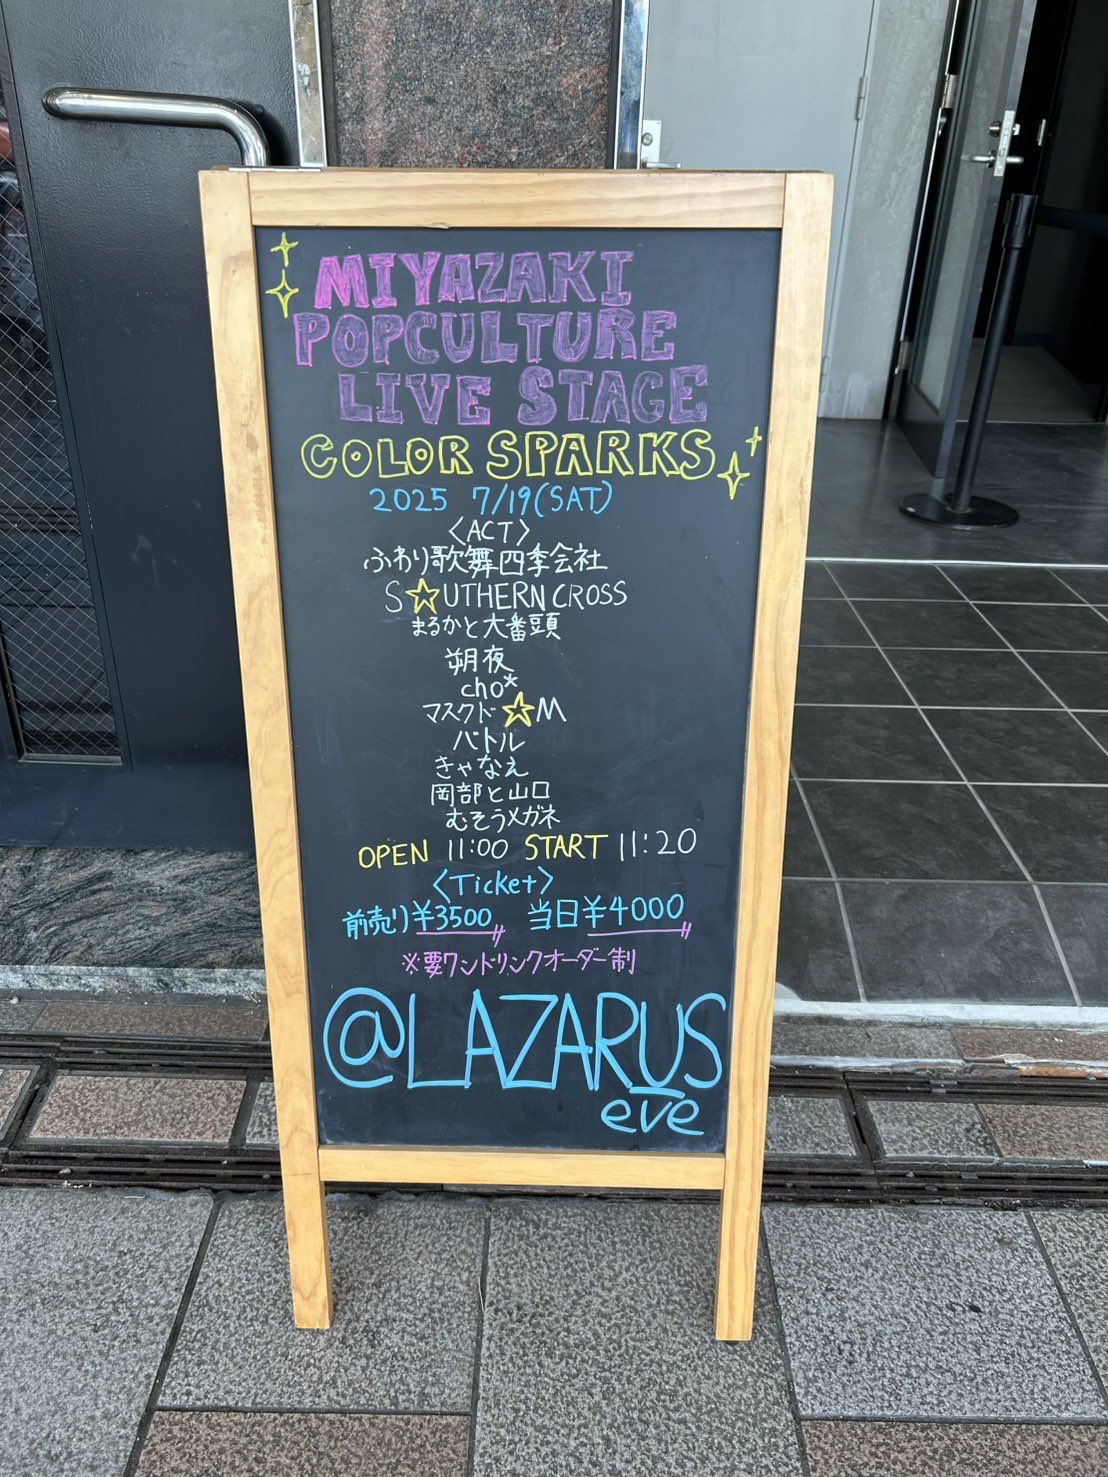 MIYAZAKI
POPCULTURE
LIVE STAGE
COLOR SPARKS
2025 7/19(SAT)
〈ACT〉
ふわり歌舞四季会社
S☆UTHERN CROSS
まるかと大番頭
朔夜
cho*
マスクド☆M
バトル
きゃなえ
岡部と山口
むそうメガネ
OPEN 11:00 START 11:20
〈Ticket〉
前売り¥3500 当日¥4000
※要ワンドリンクオーダー制
@LAZARUS
eve